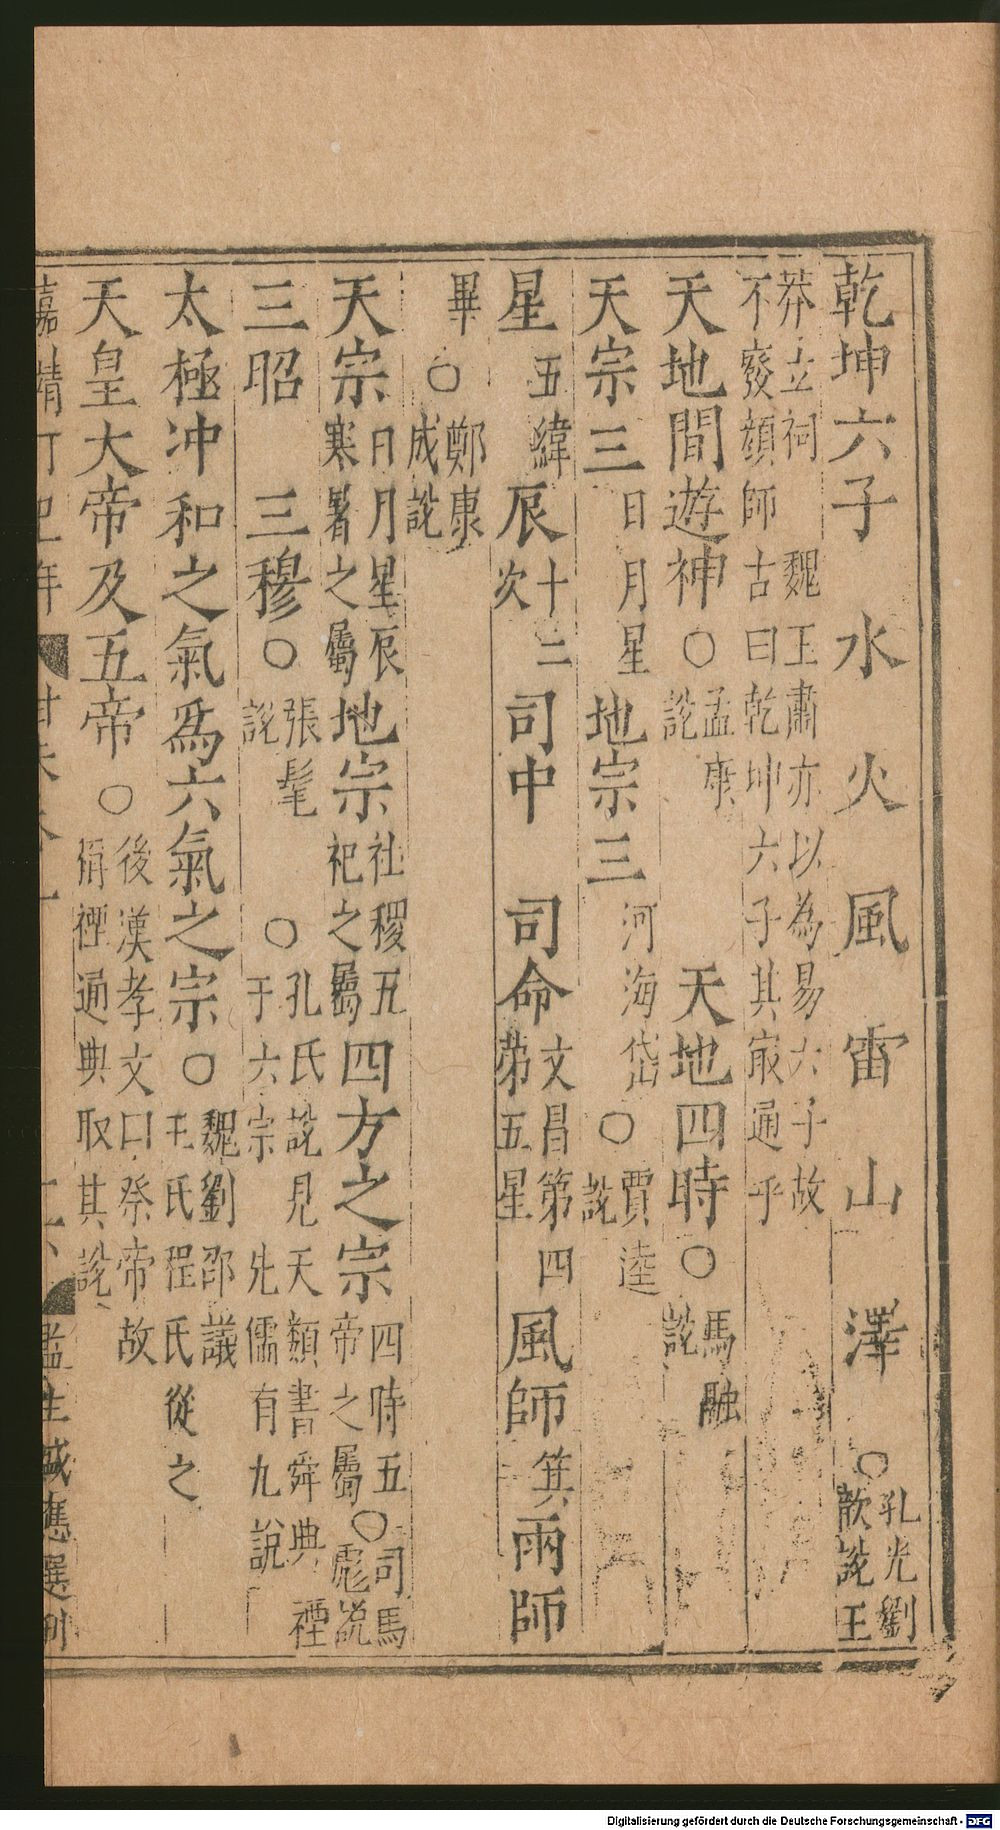 乾坤六子 水 火 風 雷 山 澤 ○孔光劉歆説王
莽立祠 魏王肅亦以為易六子故
不廢顔師古曰乾坤六子其㝡通乎
天地間遊神○孟康説 天地四時○馬融説
天宗三日月星 地宗三河海岱○賈逵説
星五緯 辰十二次 司中 司命文昌第四第五星 風師箕 雨師
畢○鄭康成説
天宗日月星辰寒暑之屬 地宗社稷五祀之屬 四方之宗四時五帝之屬○司馬彪説
三昭 三穆○張髦説 ○孔氏説見天類書舜典禋于六宗先儒有九説
太極冲和之氣爲六氣之宗○魏劉邵議王氏程氏從之
天皇大帝及五帝○後漢孝文口祭帝故稱禋通典取其説
嘉靖丁巳年 監生盛應選刊
Digitalisierung gefördert durch die Deutsche Forschungsgemeinschaft - DFG